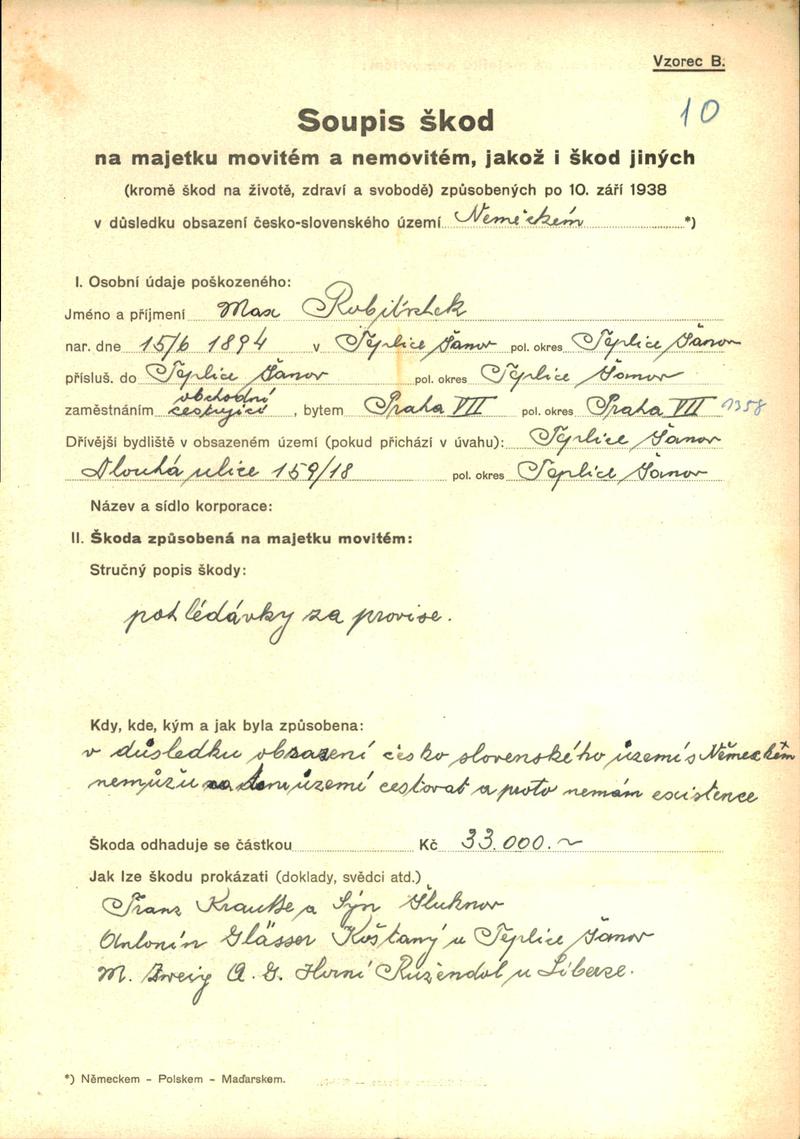 Vzorec B.
10
Soupis škod
na majetku movitém a nemovitém, jakož i škod jiných
(kromě škod na životě, zdraví a svobodě) způsobených po 10. září 1938
v důsledku obsazení česko-slovenského území Německém *)
I. Osobní údaje poškozeného:
Jméno a příjmení Max Robitschek
nar. dne 15/6 1894 v Teplice Šanov pol. okres Teplice Šanov
přísluš. do Teplice Šanov pol. okres Teplice Šanov
zaměstnáním obchodní cestující, bytem Praha VII pol. okres Praha VII 1358
Dřívější bydliště v obsazeném území (pokud přichází v úvahu): Teplice Šanov
Dlouhá ulice 159/18 pol. okres Teplice Šanov
Název a sídlo korporace:
II. Škoda způsobená na majetku movitém:
Stručný popis škody:
pohlédávky za provise.
Kdy, kde, kým a jak byla způsobena:
v důsledku obsazení česko slovenského území s Německém
nemůžu území cestovat a proto nemám existence
Škoda odhaduje se částkou Kč 33.000.~
Jak lze škodu prokázati (doklady, svědci atd.)
Franz Krause a Syn Šluknov
Antonín Glässer Košťaný u Teplice Šanov
M. Zweig A. G. Horní Ružendol u Liberce.
*) Německem - Polskem - Maďarskem.